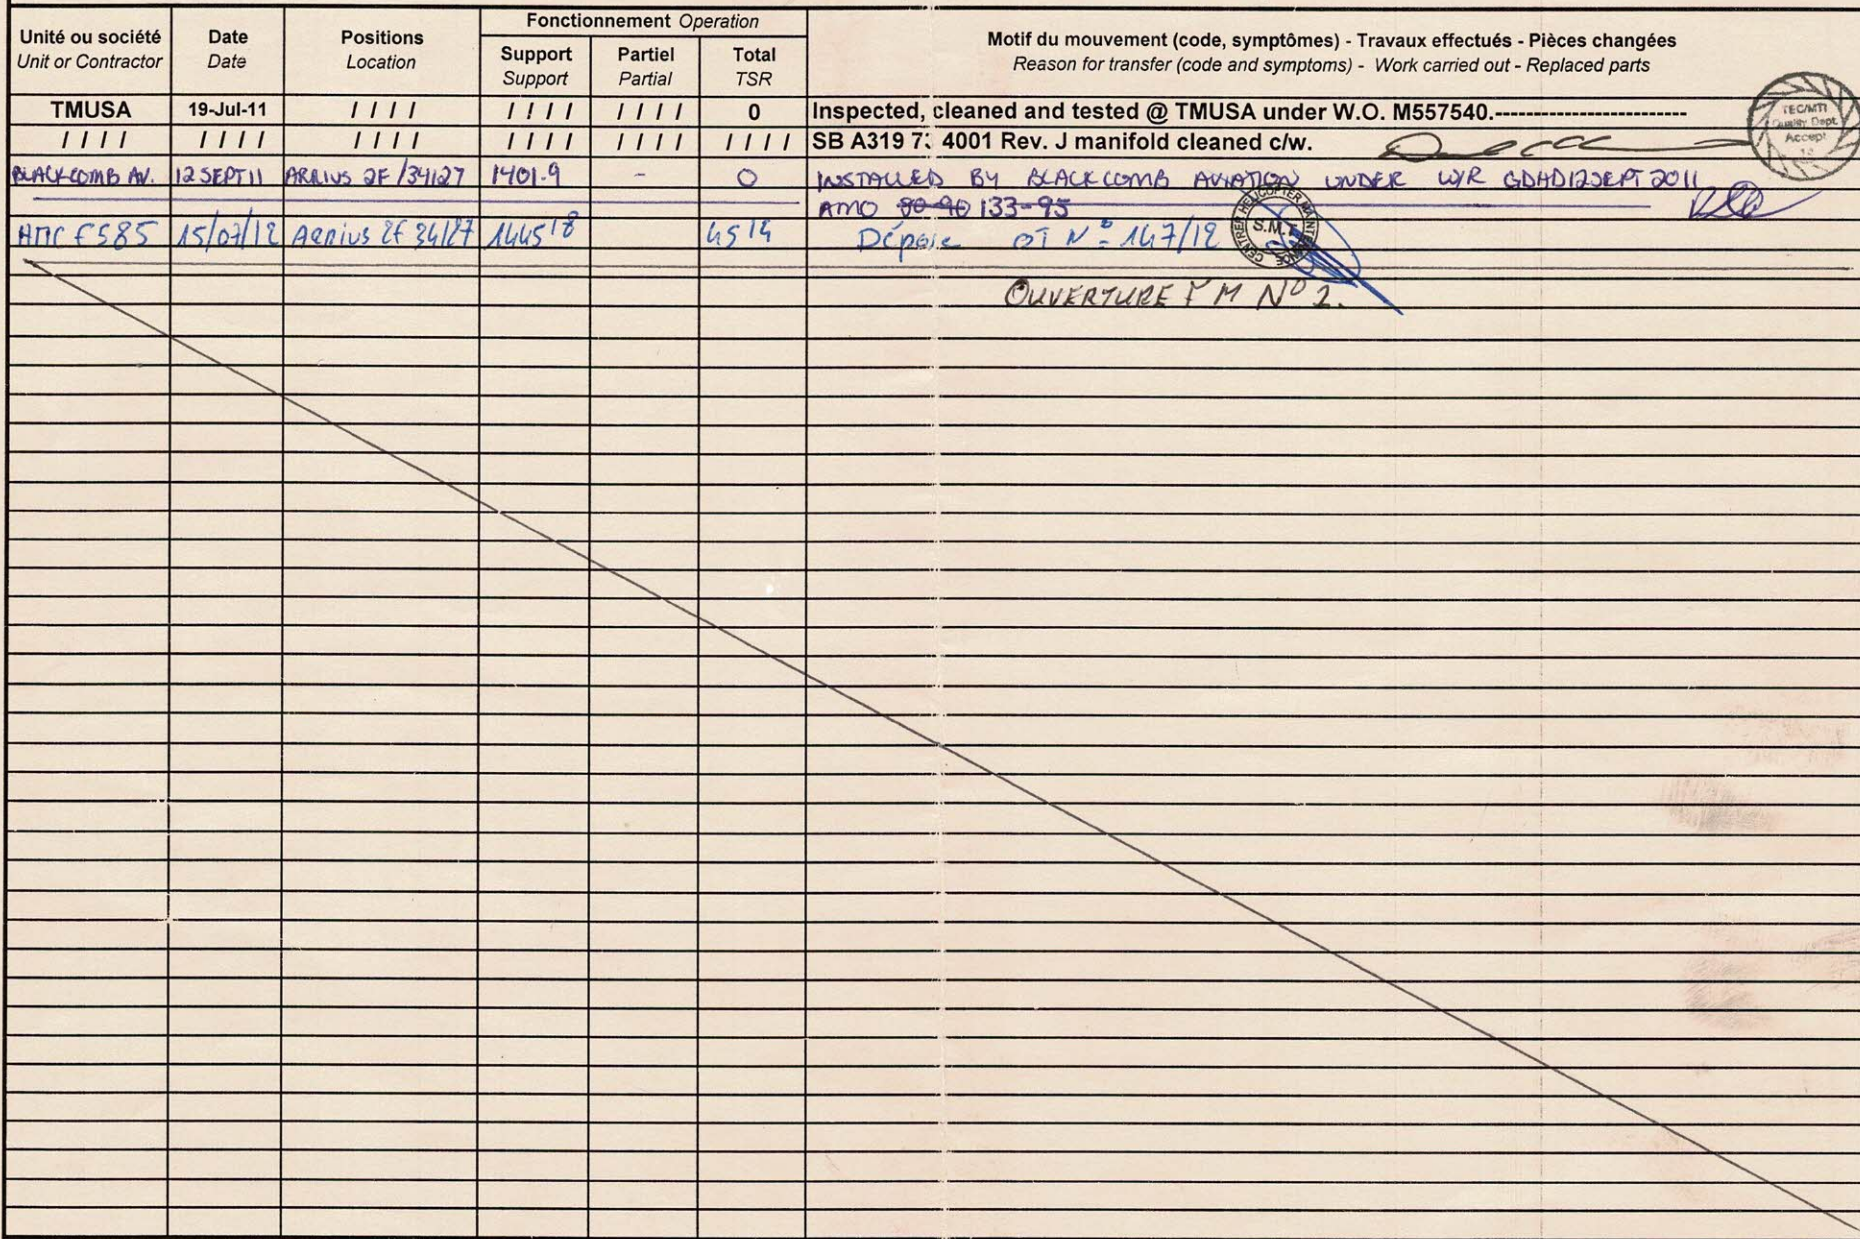 Unité ou société
Unit or Contractor
Date
Date
Positions
Location
Fonctionnement Operation
Support
Support
Partiel
Partial
Total
TSR
Motif du mouvement (code, symptômes) - Travaux effectués - Pièces changées
Reason for transfer (code and symptoms) - Work carried out - Replaced parts
TMUSA 19-Jul-11 / / / / / / / / / / / / 0 Inspected, cleaned and tested @ TMUSA under W.O. M557540.--------------------------
TEC/MTI
Quality Dept.
Accept
/ / / / / / / / / / / / / / / / / / / / / / / / SB A319 73 4001 Rev. J manifold cleaned c/w.
BLACKCOMB AV. 12 SEPT 11 ARRIUS 2F /34127 1401.9 - 0 INSTALLED BY BLACKCOMB AVIATION UNDER W/R GDHD12SEPT 2011
AMO 80-90 133-95
HMC F585 15/07/12 Arrius 2F 34127 1445 18 45 14 Dépose OT N° 147/12
CENTRE HELICOPTER MAINTENANCE
S.M.T
OUVERTURE F M N° 2.